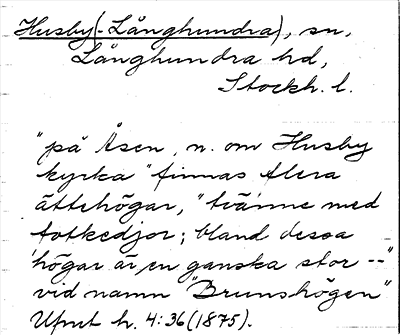 Husby(-Långhundra), sn,
Långhundra hd,
Stockh. l.
"på Åsen, n. om Husby
kyrka" finnas flera
ättehögar, "tvänne med
fotkedjor; bland dessa
högar är en ganska stor --"
vid namn "Brunshögen"
Ufmt h. 4:36 (1875).